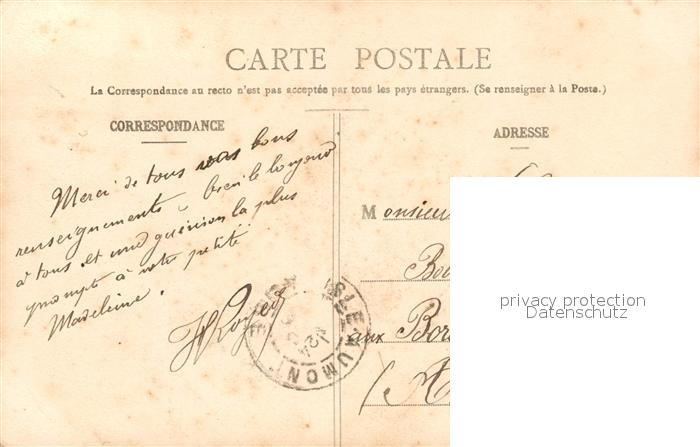 CARTE POSTALE
La Correspondance au recto n'est pas acceptée par tous les pays étrangers. (Se renseigner à la Poste.)
CORRESPONDANCE
Merci de tous vos bons
renseignements, bien le bonjour
à tous et une guérison la plus
prompte à votre petite
Madeleine.
ADRESSE
Monsieur
aux
privacy protection
Datenschutz
24